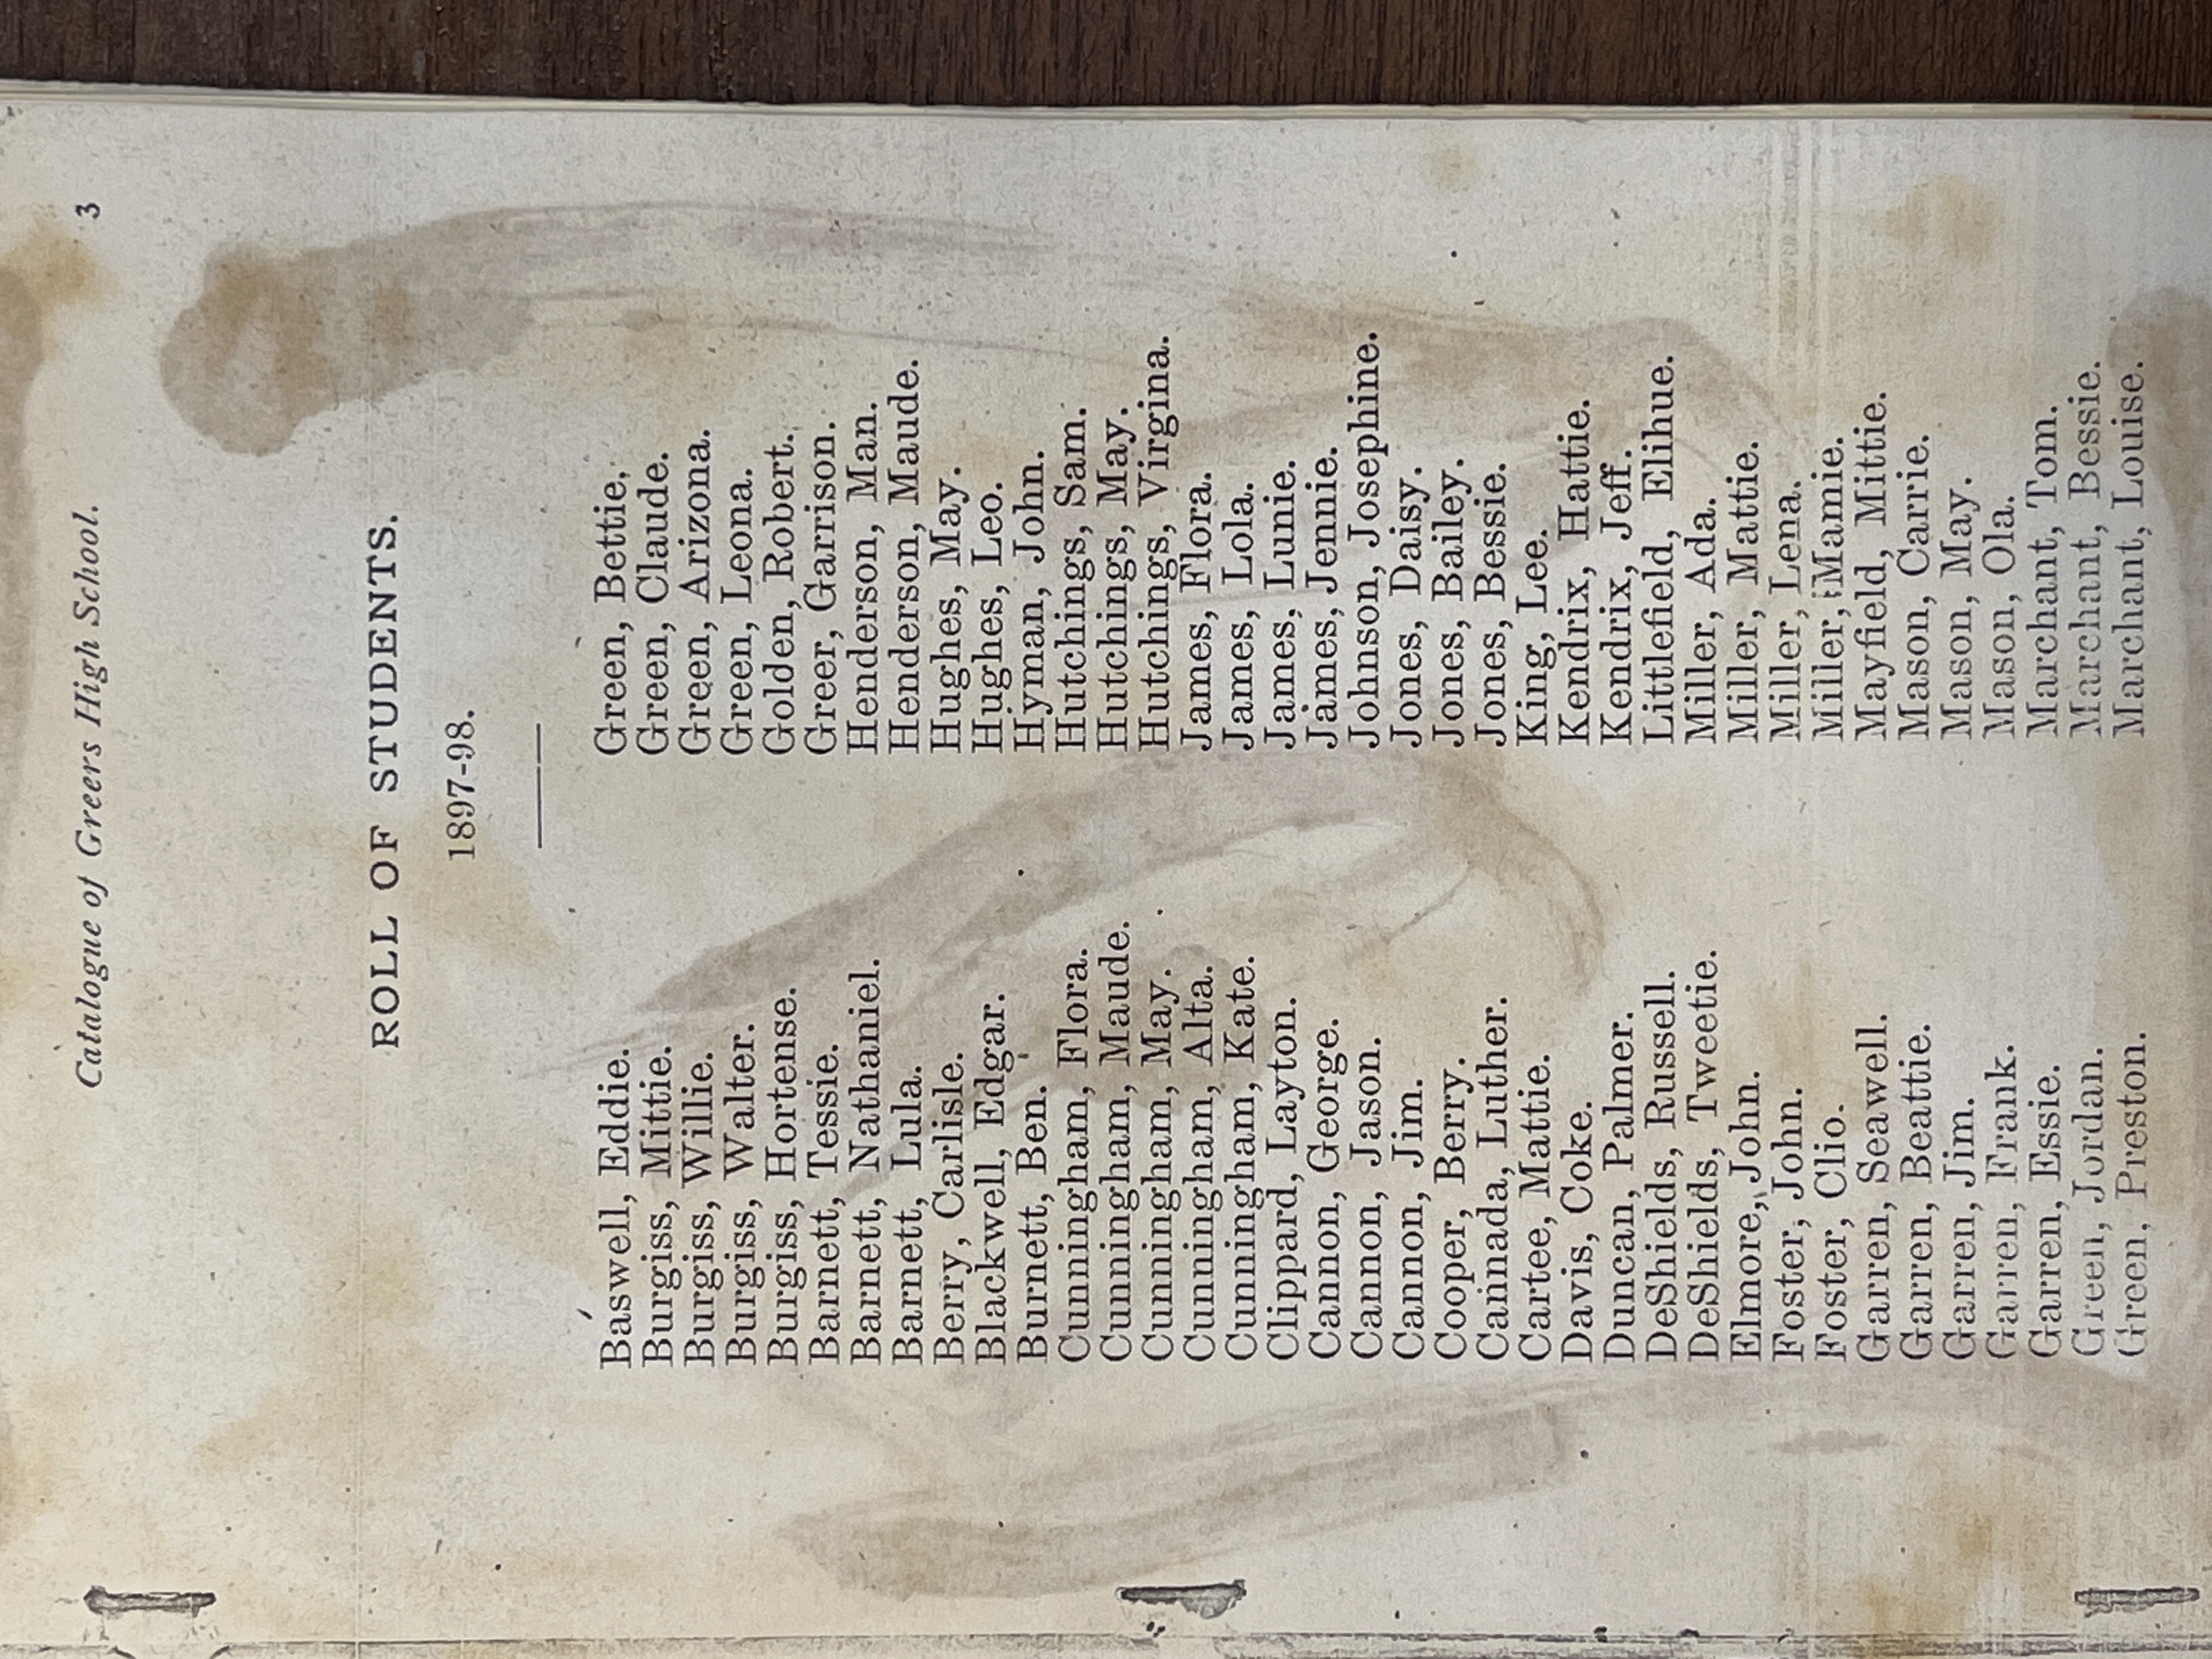 Catalogue of Greers High School. 3
ROLL OF STUDENTS.
1897-98.
Baswell, Eddie.
Burgiss, Mittie.
Burgiss, Willie.
Burgiss, Walter.
Burgiss, Hortense.
Barnett, Tessie.
Barnett, Nathaniel.
Barnett, Lula.
Berry, Carlisle.
Blackwell, Edgar.
Burnett, Ben.
Cunningham, Flora.
Cunningham, Maude.
Cunningham, May.
Cunningham, Alta.
Cunningham, Kate.
Clippard, Layton.
Cannon, George.
Cannon, Jason.
Cannon, Jim.
Cooper, Berry.
Cannada, Luther.
Cartee, Mattie.
Davis, Coke.
Duncan, Palmer.
DeShields, Russell.
DeShields, Tweetie.
Elmore, John.
Foster, John.
Foster, Clio.
Garren, Seawell.
Garren, Beattie.
Garren, Jim.
Garren, Frank.
Garren, Essie.
Green, Jordan.
Green, Preston.
Green, Bettie.
Green, Claude.
Green, Arizona.
Green, Leona.
Golden, Robert.
Greer, Garrison.
Henderson, Man.
Henderson, Maude.
Hughes, May.
Hughes, Leo.
Hyman, John.
Hutchings, Sam.
Hutchings, May.
Hutchings, Virgina.
James, Flora.
James, Lola.
James, Lunie.
James, Jennie.
Johnson, Josephine.
Jones, Daisy.
Jones, Bailey.
Jones, Bessie.
King, Lee.
Kendrix, Hattie.
Kendrix, Jeff.
Littlefield, Elihue.
Miller, Ada.
Miller, Mattie.
Miller, Lena.
Miller, Mamie.
Mayfield, Mittie.
Mason, Carrie.
Mason, May.
Mason, Ola.
Marchant, Tom.
Marchant, Bessie.
Marchant, Louise.